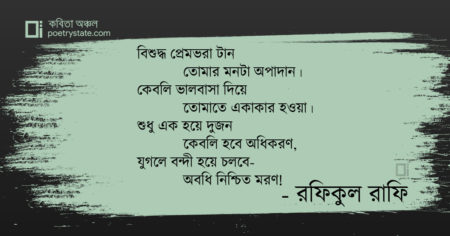 কবিতা অঞ্চল
poetrystate.com
বিশুদ্ধ প্রেমভরা টান
তোমার মনটা অপাদান।
কেবলি ভালবাসা দিয়ে
তোমাতে একাকার হওয়া।
শুধু এক হয়ে দুজন
কেবলি হবে অধিকরণ,
যুগলে বন্দী হয়ে চলবে-
অবধি নিশ্চিত মরণ!
- রফিকুল রাফি